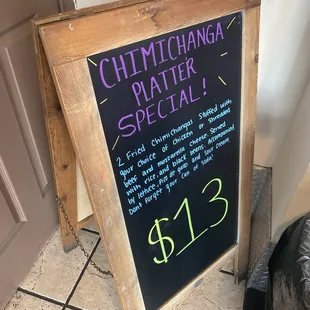 CHIMICHANGA
PLATTER
SPECIAL!
2 Fried Chimichangas Stuffed with
your Choice of Chicken or Shredded
beef and mozzarella Cheese. Served
with rice and black beans. Accompanied
by lettuce, Pico de gallo and Sour Cream
Dont forget your Can of Soda!
$13